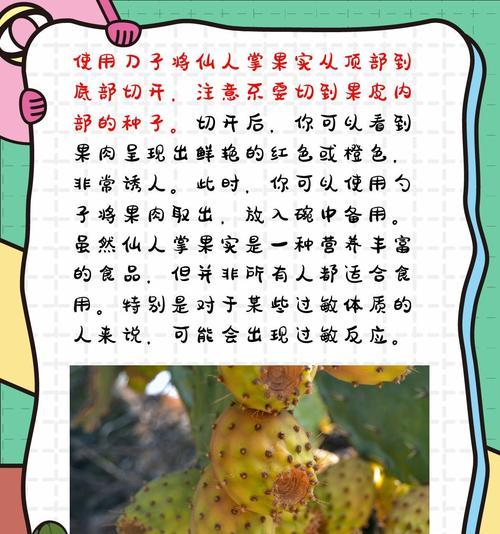 使用刀子将仙人掌果实从顶部到
底部切开，注意不要切到果皮内
部的种子。切开后，你可以看到
果肉呈现出鲜艳的红色或橙色，
非常诱人。此时，你可以使用勺
子将果肉取出，放入碗中备用。
虽然仙人掌果实是一种营养丰富
的食品，但并非所有人都适合食
用。特别是对于某些过敏体质的
人来说，可能会出现过敏反应。